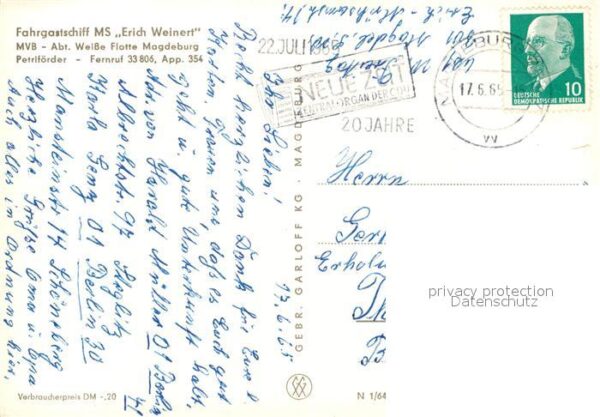 Fahrgastschiff MS „Erich Weinert"
MVB - Abt. Weiße Flotte Magdeburg
Petriförder - Fernruf 33 806, App. 354
17.6.65
Ihr Lieben!
Recht herzlichen Dank für Eure l.
Karten, freuen uns, daß es Euch gut
geht u. gute Unterkunft habt.
Adr. von Harald Müller 01 Berlin 41
Albrechtstr. 97 Steglitz
Karla Genz 01 Berlin 30
Mansteinstr. 14 Schöneberg
Herzliche Grüße Oma u. Opa
Auch alles in Ordnung hier.
Verbraucherpreis DM -,20
GEBR. GARLOFF KG · MAGDEBURG
N 1/64
22. JULI 1965
NEUE ZEIT
ZENTRALORGAN DER CDU
20 JAHRE
MAGDEBURG
17.6.65
DEUTSCHE
DEMOKRATISCHE REPUBLIK
10
301 Magdeburg
Herrn
privacy protection
Datenschutz